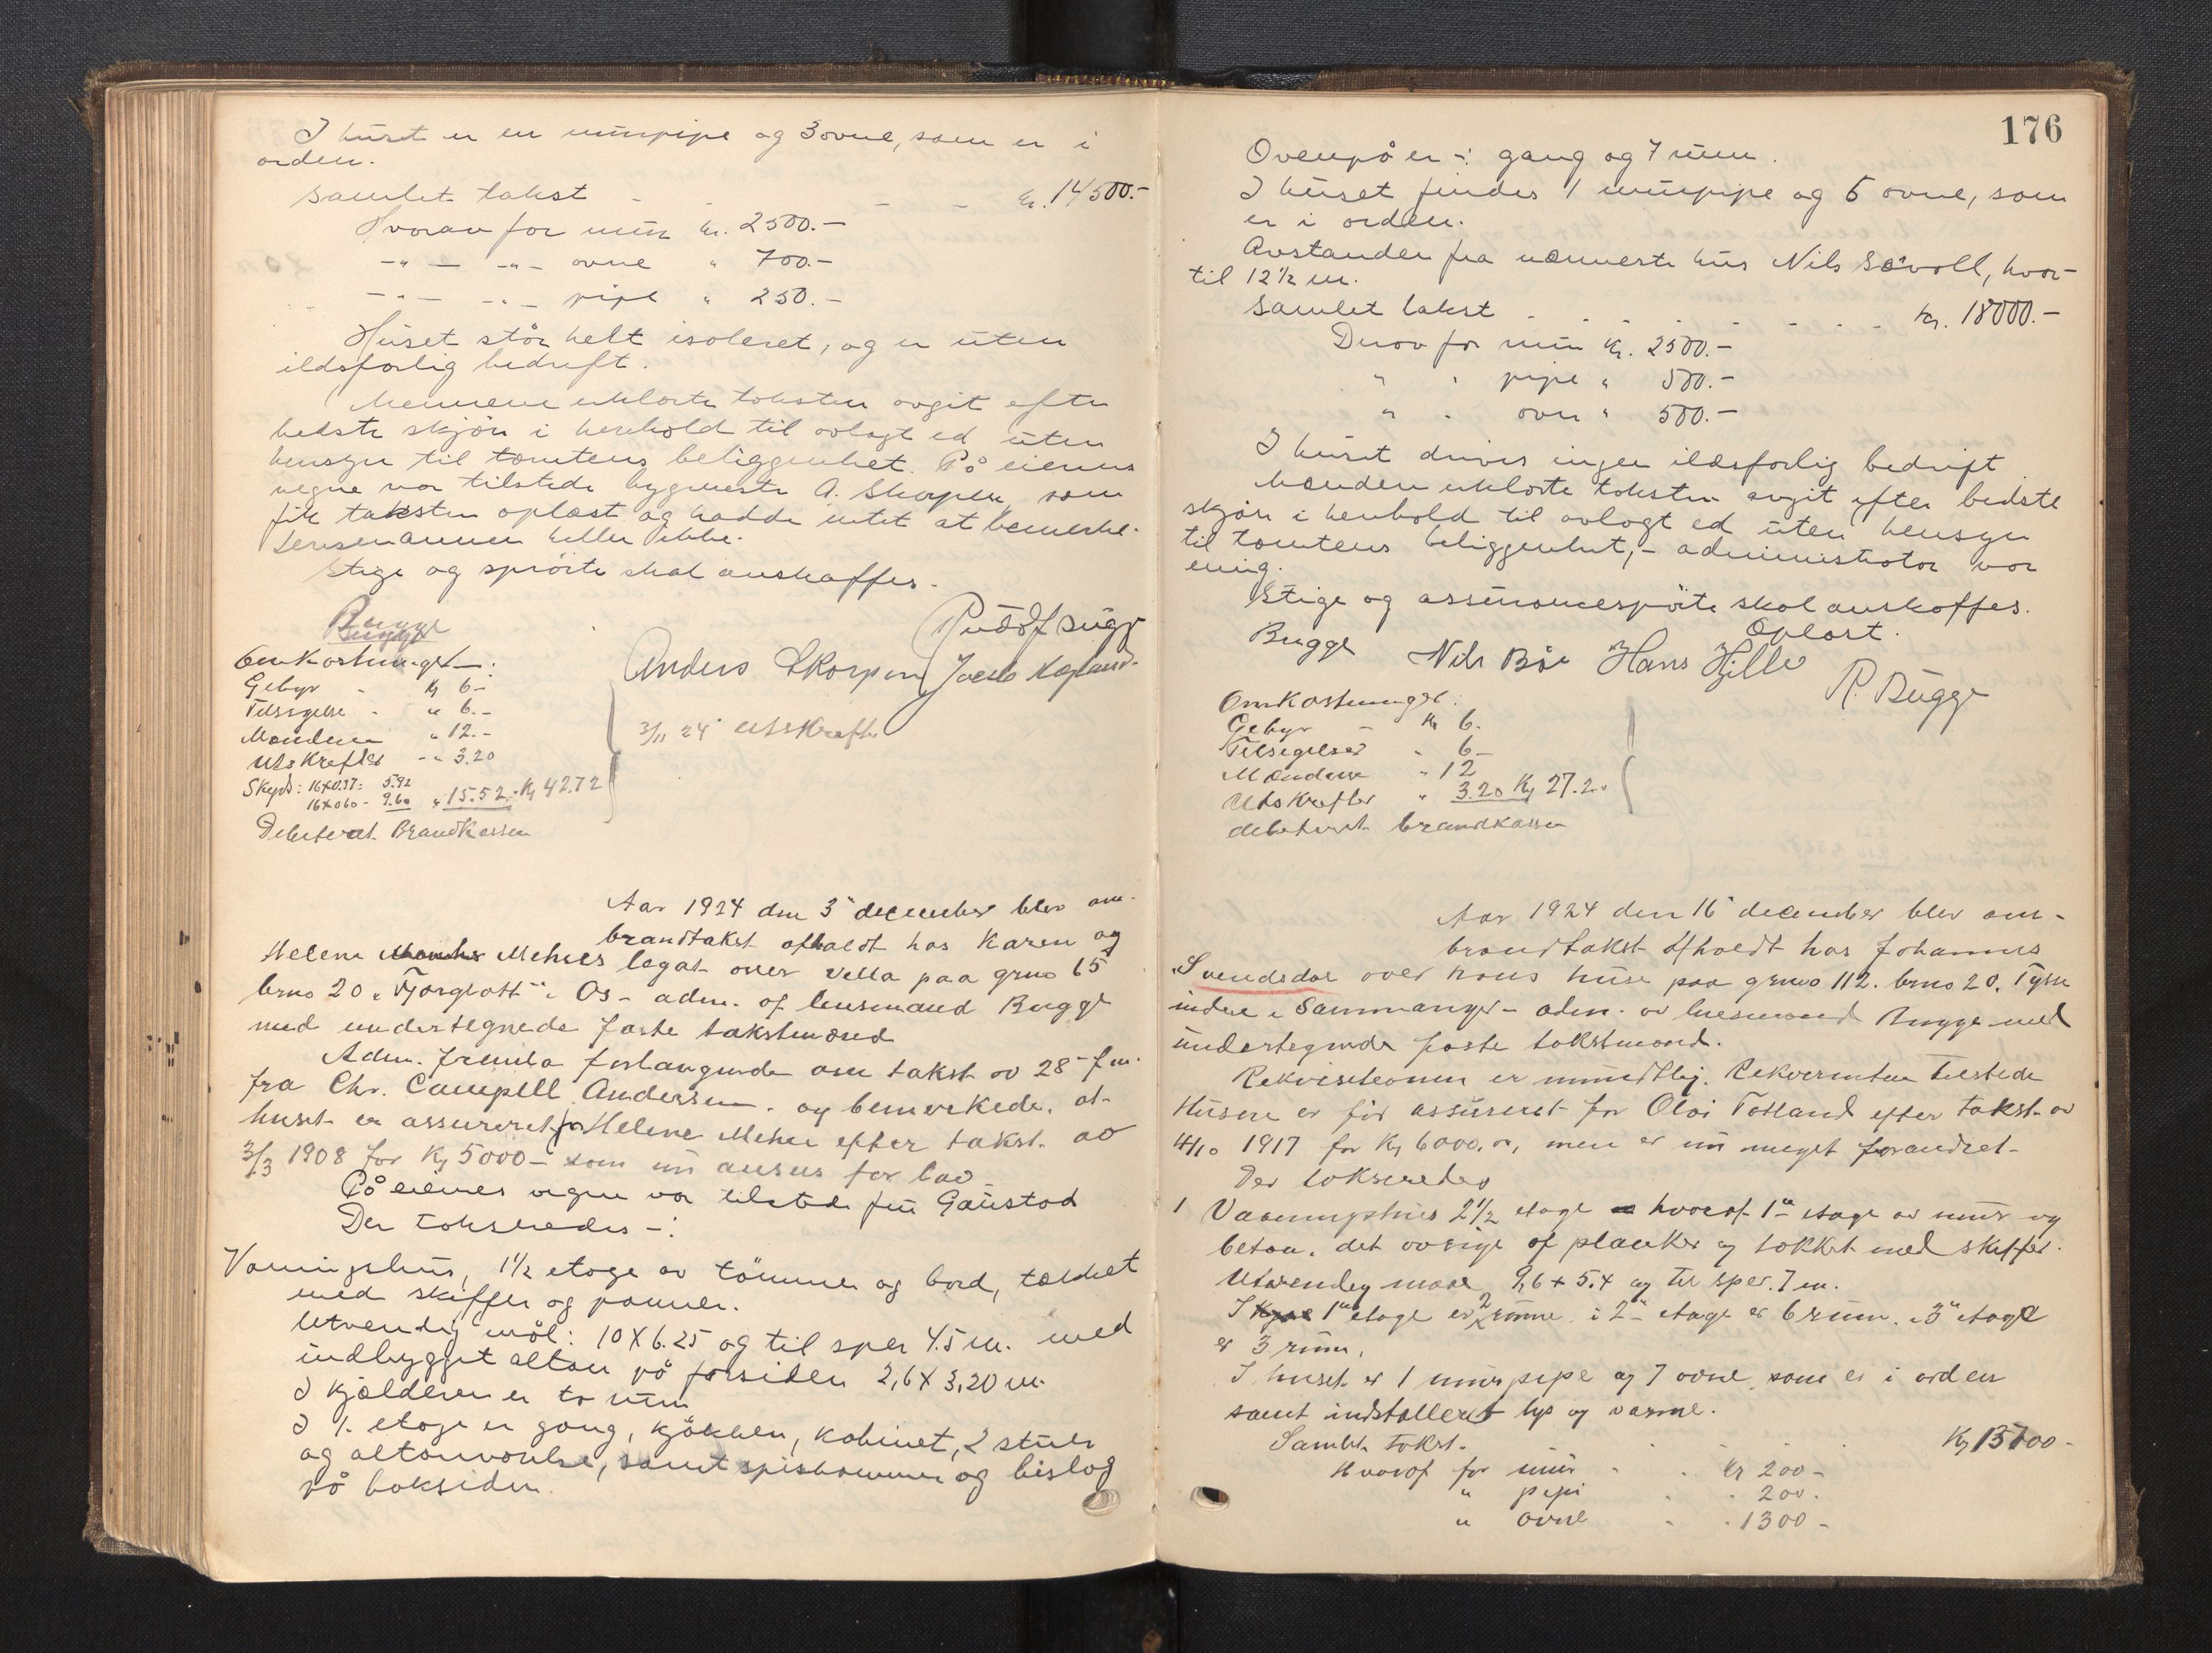 I huset er en murpipe og 3 ovne, som er i
orden.
Samlet takst - - - - kr. 14500.-
Hvorav for mur kr. 2500.-
-"- -"- ovne " 700.-
-"- -"- pipe " 250.-
Huset står helt isoleret, og er uten
ildsfarlig bedrift.
Mennene erklærte taksten avgit efter
bedste skjön i henhold til avlagt ed uten
hensyn til tomtens beliggenhet. På eierens
vegne var tilstede bygmester A. Skorpen, som
fik taksten oplæst og hadde intet at bemerke.
Lensmannen heller ikke.
Stige og spröite skal anskaffes.
Bugge
Rudolf Bugge
Anders Skorpen Jacob
Omkostninger:
Gebyr - Kr 6-
Tilsigelse - " 6.-
Mændene " 12.-
Utskrefter -" 3.20
Skyds: 16x0.37= 5.92
16x0.60- 9.60 " 15.52. Kr 42.72
Debiteret Brandkassen
3/11 24 Utskrefter
Aar 1924 den 3 december blev om-
brandtakst afholdt hos Karen og
Helene Mehes legat over Villa paa grno 65
brno 20 Os - adm. af lensmand Bugge
med undertegnede faste takstmænd
Adm. fremla forlangende om takst av 28 f.m.
fra Chr. Campell Andersen. og bemerkede, at
huset er assureret for Helene Mehe efter takst. av
3/3 1908 for Kr 5000- som nu ansees for lav
På eiernes vegne var tilstede fru Gaustad
Der taksertes -:
Vaningshus, 1½ etage av tömmer og bord, tækket
med skiffer og panner.
Utvendig mål: 10 X 6.25 og til sper 4.5 m. med
indbygget altan på forsiden 2,6 X 3,20 m.
I kjælderen er to rum
I 1. etage er gang, kjökken, kabinet, 2 stuer
og altanværelse, samt spiskammer og bislag
på baksiden.
176
Ovenpå er -: gang og 7 rum.
I huset findes 1 murpipe og 5 ovne, som
er i orden.
Avstanden fra nærmeste hus Nils Sævoll, hvor-
til 12½ m.
Samlet takst - - - - - - - kr. 18000.-
Derav for mur kr. 2500.-
" " pipe " 500.-
" " ovn " 500.-
I huset drives ingen ildsfarlig bedrift
Mændene erklærte taksten avgit efter bedste
skjön i henhold til avlagt ed uten hensyn
til tomtens beliggenhet, - administrator var
enig.
Stige og assurancespröite skal anskaffes.
Oplæst.
Bugge Nils Böe Hans Hjelle R. Bugge
Omkostninger:
Gebyr - Kr 6.
Tilsigelser - 6-
Mændene " 12
Utskrefter " 3.20 Kr 27.20
debiteret brandkassen
Aar 1924 den 16 december blev om-
brandtakst afholdt hos Johannes
Svendsdal over hans huse paa grno 112. brno 20. Tysse
indre i Sammanger - adm. av lensmand Bugge med
undertegnede faste takstmænd.
Rekvisitionen er mundtlig. Rekvirenten tilstede
Husene er för assureret for Olai Totland efter takst. av
4/10 1917 for Kr 6000.00, men er nu meget forandret-
Der takseredes
1 Vaaningshus 2½ etage hvoraf 1ste etage av mur og
beton. det øvrige af planker og tækket med skiffer.
Utvendig maal 9,6 + 5.4 og til sper. 7 m.
I 1ste etage er 2 rumme. i 2- etage er 6 rum. i 3" etage
er 3 rum.
I huset er 1 murpipe og 7 ovne som er i orden
samt indstalleret lys og varme.
Samlet takst. - - - - Kr 15000-
Hvoraf for mur - - Kr 200-
" pipe - - 200.
" ovne - - 1300-